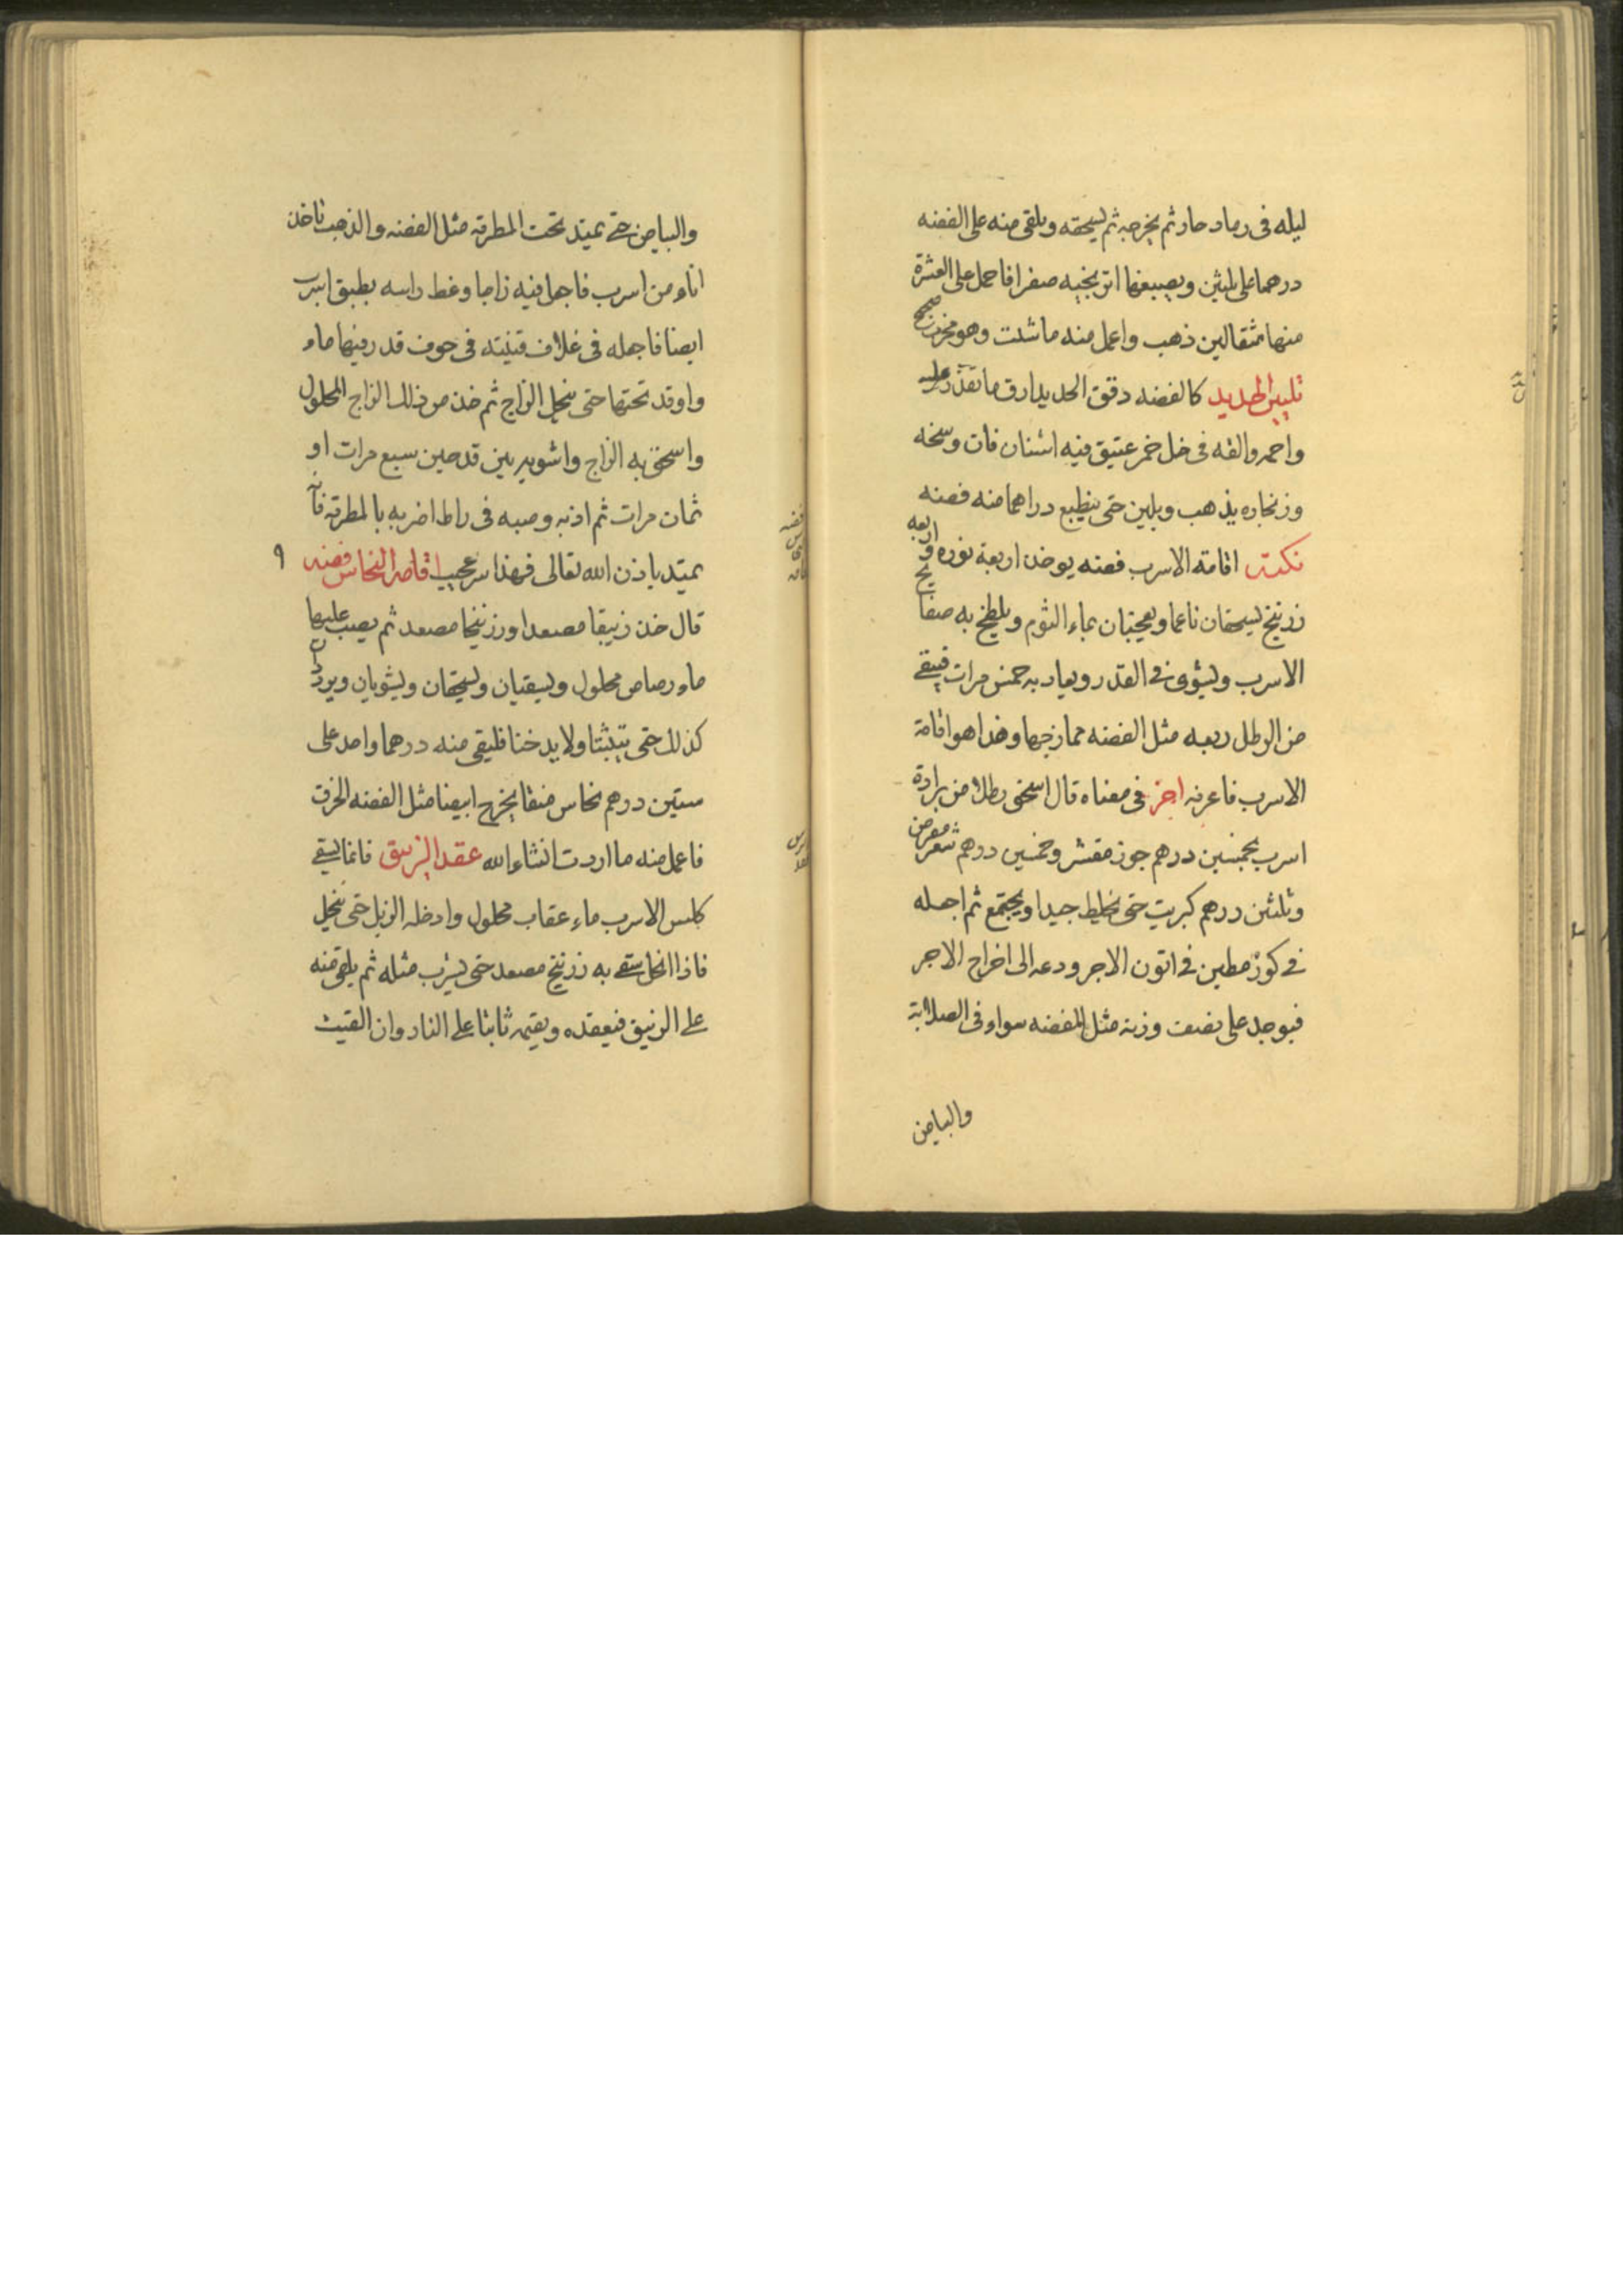 ليله فى رماد حار ثم يخرجه ثم يسحقه ويلقى منه على الفضه
درهما على ثلثين ويصيبغها اترنجيه صفرا فاحمل على العشرة
منها مثقالين ذهب واعمل منه ما شئت وهو مجرب صحيح
تليين الحديد كالفضه دقق الحديد ارق ما تقدر عليه
واحمه والقه فى خل خمر عتيق فيه اشنان فان وسخه
وزنجاره يذهب ويلين حتى ينطبع دراهما منه فضه
نكت اقامة الاسرب فضه يوخذ اربعة نوره واربعه
زرنيخ يسحقان ناعما ويعجنان بماء الثوم ويلطخ به صفايح
الاسرب ويشوى فى القدر ويعاد به خمس مرات فيبقى
من الرطل ربعه مثل الفضه ممازجها وهذا هو اقامة
الاسرب فاعرفه اخر فى معناه قال اسحق رطلا من برادة
اسرب بخمسين درهم جوز مقشر وخمسين درهم شعر مقرض
وثلثين درهم كبريت حتى يختلط جيدا ويجتمع ثم اجعله
فى كوز مطين فى اتون الاجر ودعه الى اخراج الاجر
فيوجد على نصف وزنه مثل الفضه سواء فى الصلابة
والبياض
والبياض حتى يمتد تحت المطرقه مثل الفضه والذهب تاخذ
اناء من اسرب فاجعل فيه زاجا وغط راسه بطبق اسرب
ايضا فاجعله فى غلاف قنينه فى جوف قدر فيها ماء
واوقد تحتها حتى ينحل الزاج ثم خذ من ذلك الزاج المحلول
واسحق به الزاج واشويه بين قدحين سبع مرات او
ثمان مرات ثم اذبه وصبه فى راط اضربه بالمطرقه فانه
يمتد باذن الله تعالى فهذا سر عجيب اقامه النحاس فضه
قال خذ زيبقا مصعدا وزرنيخا مصعد ثم يصب عليهما
ماء رصاص محلول ويسقيان ويسحقان ويشويان ويردد
كذلك حتى يتثبتا ولا يدخنا فليقى منه درهما واحد على
ستين درهم نحاس منقا يخرج ابيضا مثل الفضه الخرق
فاعمل منه ما اردت انشاء الله عقد الزيبق فانما يسقى
كلس الاسرب ماء عقاب محلول وادخله الزبل حتى ينحل
فاذا انحل سقى به زرنيخ مصعد حتى يشرب مثله ثم يلقى منه
على الزيبق فيعقده ويقيمه ثابتا على النار وان القيت